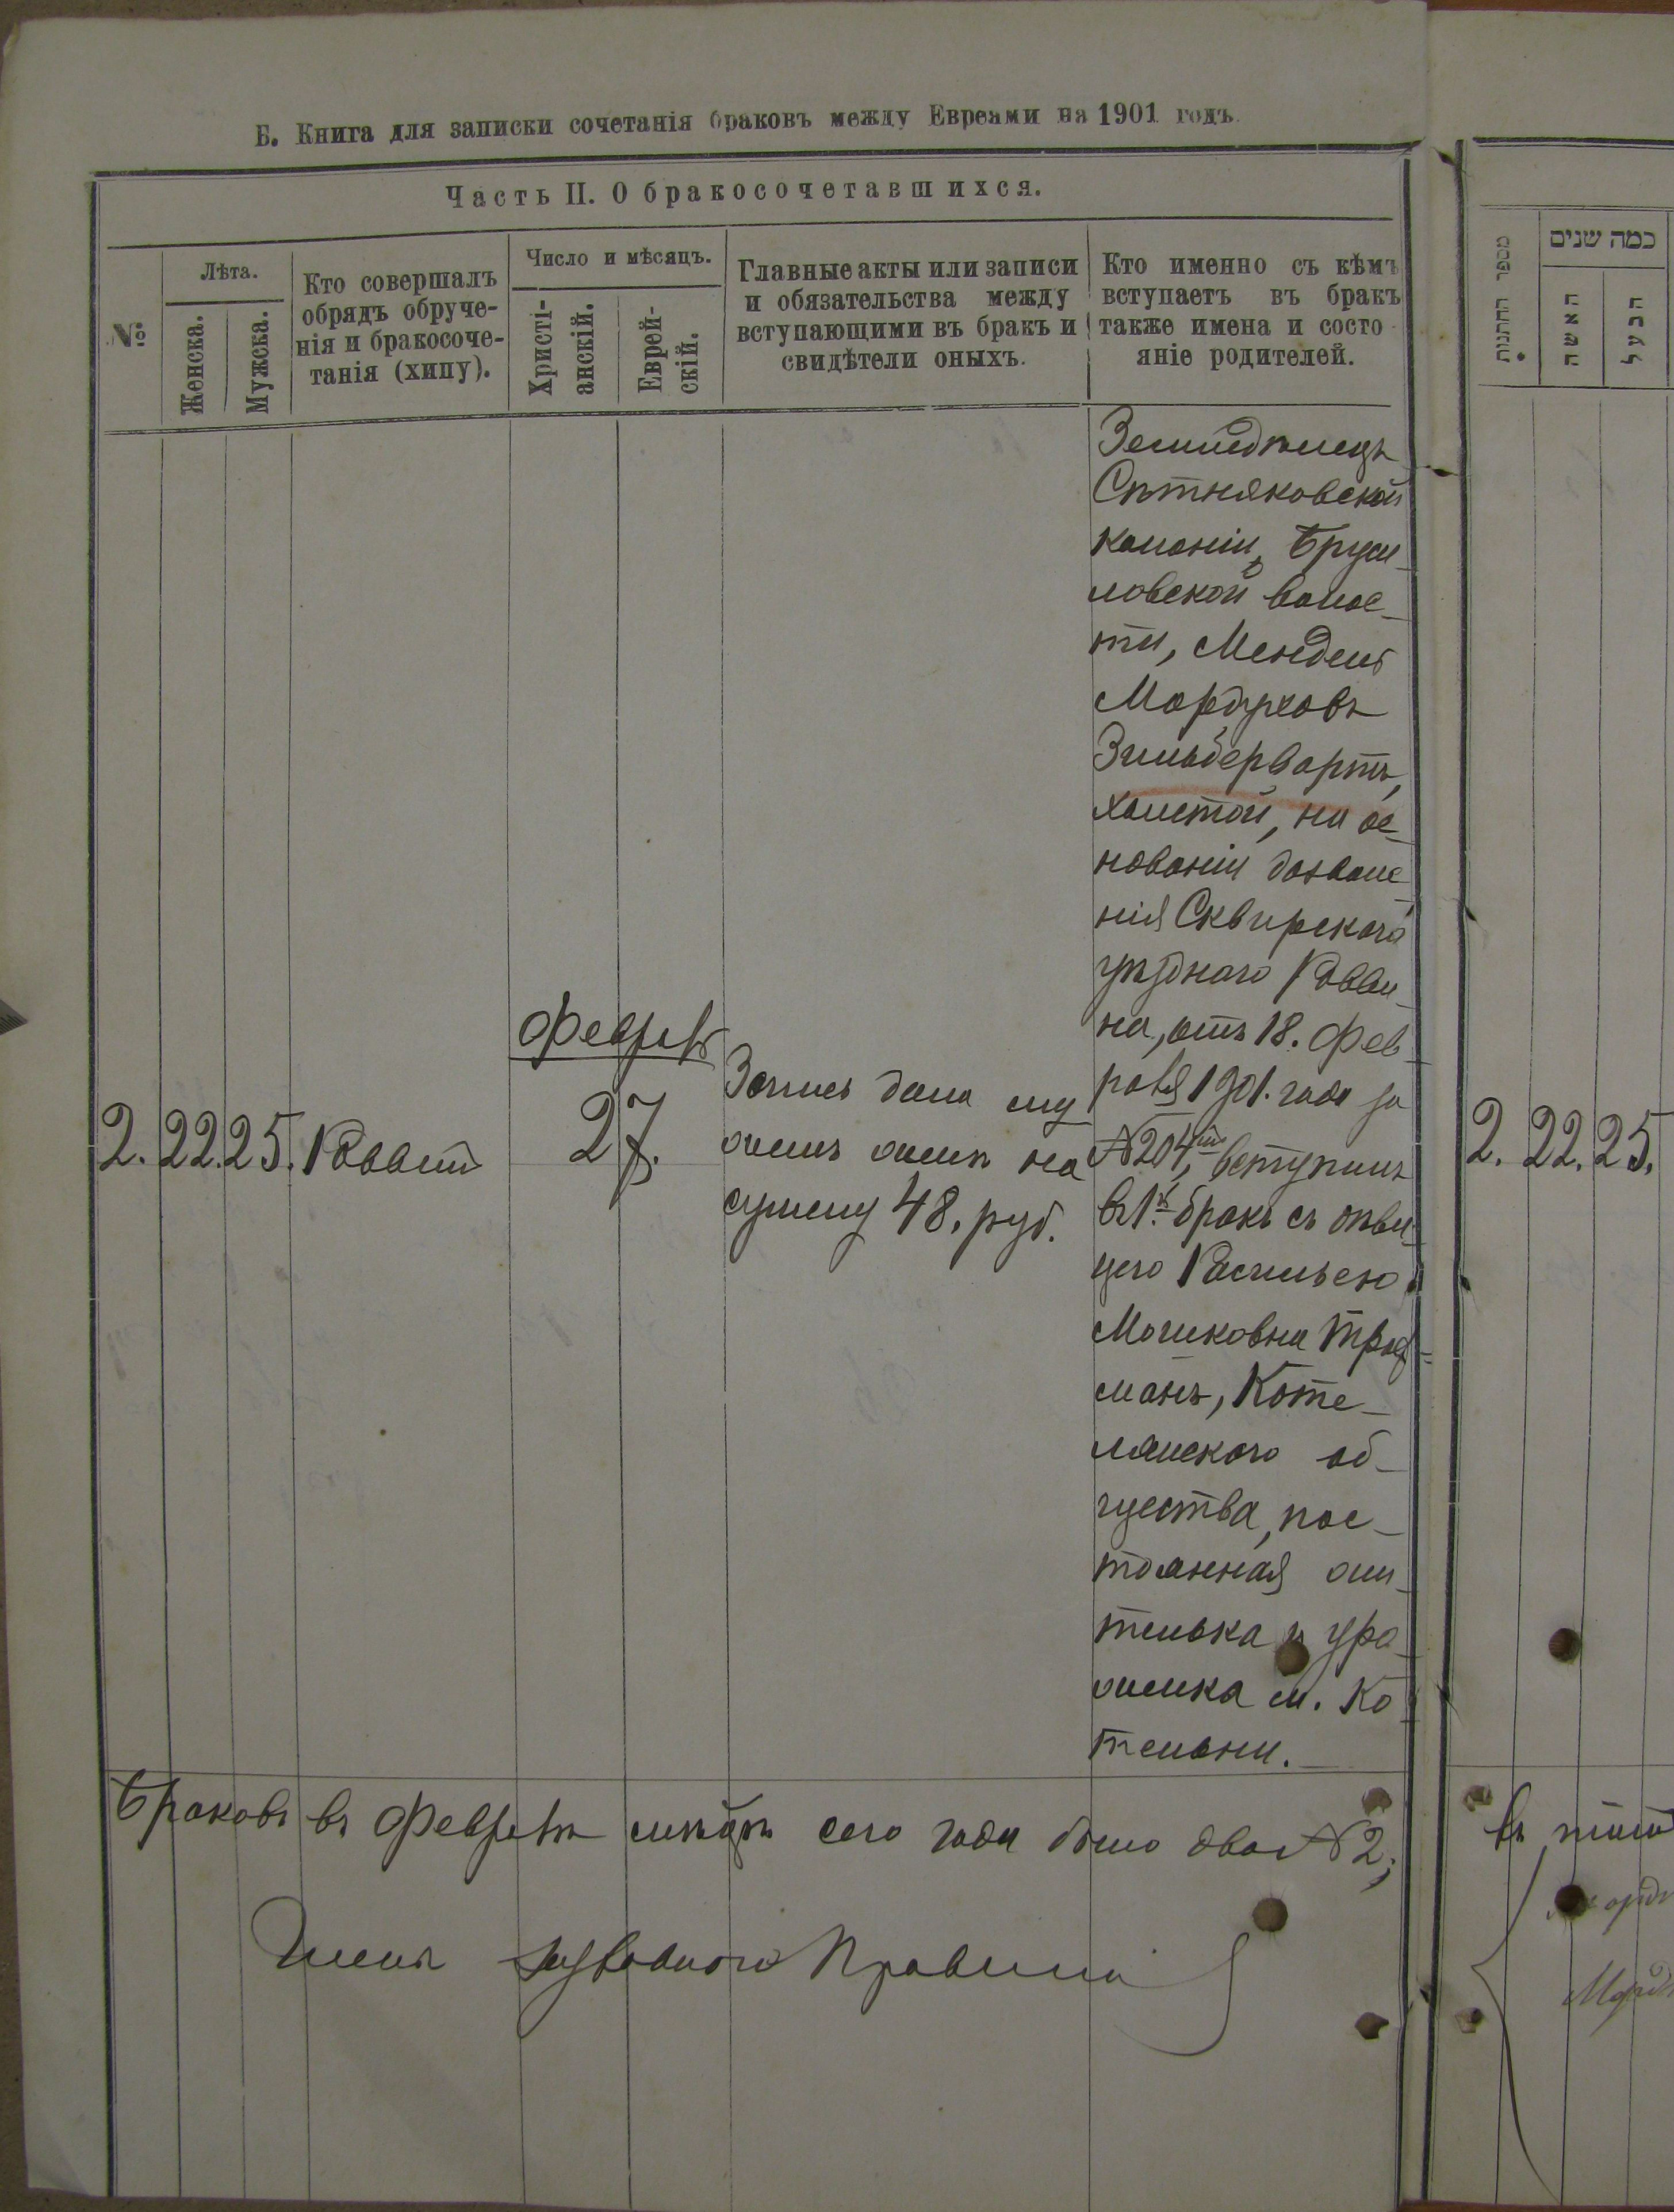 Б. Книга для записки сочетанія браковъ между Евреями на 1901 годъ.
Часть II. О бракосочетавшихся.
№
Лѣта.
Женска.
Мужска.
Кто совершалъ
обрядъ обруче-
нія и бракосоче-
танія (хипу).
Число и мѣсяцъ.
Христі-
анскій.
Еврей-
скій.
Главные акты или записи
и обязательства между
вступающими въ бракъ и
свидѣтели оныхъ.
Кто именно съ кѣмъ
вступаетъ въ бракъ
также имена и состо-
яніе родителей.
2. 22. 25. Раввинъ
27.
Запись дана му
жемъ женѣ на
сумму 48. руб.
Земледѣлецъ
Ситняковской
колоніи, Бруси-
ловской волос-
ти, Мендель
Мордуховъ
Зильберварть,
холостой, на ос-
нованіи дозволе
нія Сквирскаго
уѣзднаго Равви-
на, отъ 18. Фев-
раля 1901. года за
№ 204, вступилъ
въ 1й бракъ съ дѣви-
цею Расильею
Мошковна
манъ, Коте-
лянскаго об-
щества, пос-
тоянная жи-
телька и уро-
женка м. Ко
тельни.
Браковъ въ Февралѣ мѣсяцѣ сего года было два № 2;
מספר החתנות
כמה שנים
האשה
הבעל
2. 22. 25.